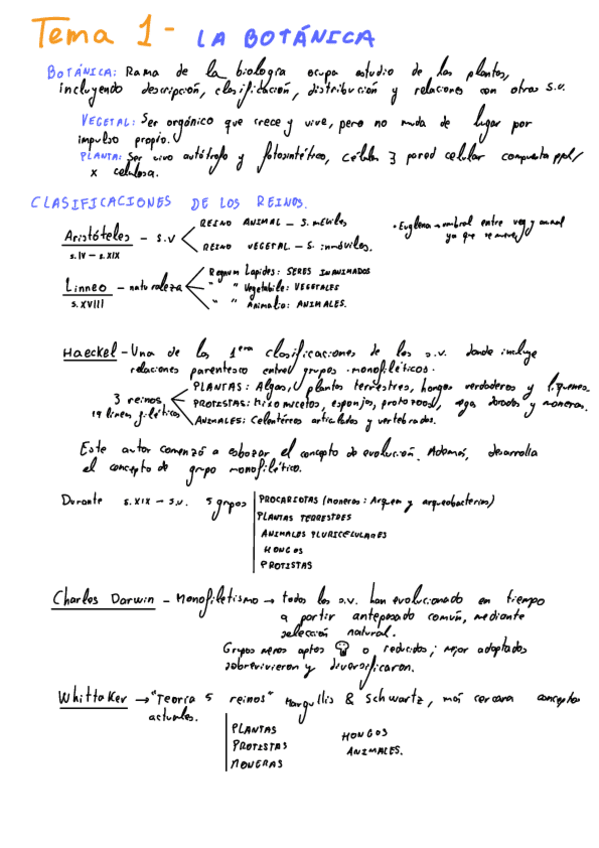 Tema 1 - LA BOTÁNICA
BOTÁNICA: Rama de la biología ocupa estudio de las plantas,
incluyendo descripción, clasificación, distribución y relaciones con otros s.v.
VEGETAL: Ser orgánico que crece y vive, pero no muda de lugar por
impulso propio.
PLANTA: Ser vivo autótrofo y fotosintético, células ∃ pared celular compuesta ppl/
x celulosa.
CLASIFICACIONES DE LOS REINOS.
Aristóteles - s.v
s.IV - s.XIX
REINO ANIMAL - S. móviles
REINO VEGETAL - S. inmóviles.
· Euglena → umbral entre veg y animal
ya que se mueve
Linneo - naturaleza
s.XVIII
Regnum Lapides: SERES INANIMADOS
" " Vegetabile: VEGETALES
" " Animalia: ANIMALES.
Haeckel - Una de las 1eras clasificaciones de los s.v. donde incluye
relaciones parentesco entre grupos monofiléticos.
3 reinos
19 líneas filéticas
PLANTAS: Algas, plantas terrestres, hongos verdaderos y líquenes.
PROTISTAS: Mixomicetos, esponjas, protozoos, algas doradas y moneras.
ANIMALES: Celentéreos articulados y vertebrados.
Este autor comenzó a esbozar el concepto de evolución. Además, desarrolla
el concepto de grupo monofilético.
Durante s.XIX - s.v. 5 grupos
PROCARIOTAS (moneras: Arquea y arqueobacterias)
PLANTAS TERRESTRES
ANIMALES PLURICELULARES
HONGOS
PROTISTAS
Charles Darwin - Monofiletismo → todos los s.v. han evolucionado en tiempo
a partir antepasado común, mediante
selección natural.
Grupos menos aptos o reducidos; mejor adaptados
sobrevivieron y diversificaron.
Whittaker → "Teoría 5 reinos" Margullis & Schwartz, más cercana conceptos
actuales.
PLANTAS
PROTISTAS
MONERAS
HONGOS
ANIMALES.